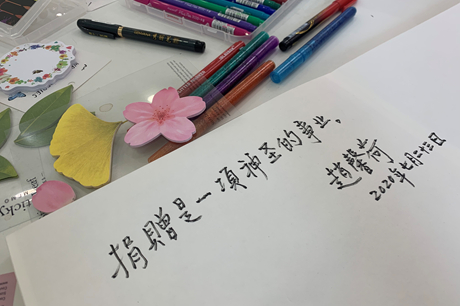 捐贈是一項神圣的事业。
趙馨荷
2020年七月二十三日
sticky